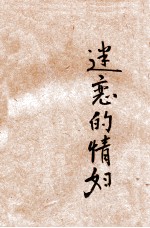 迷恋的情妇